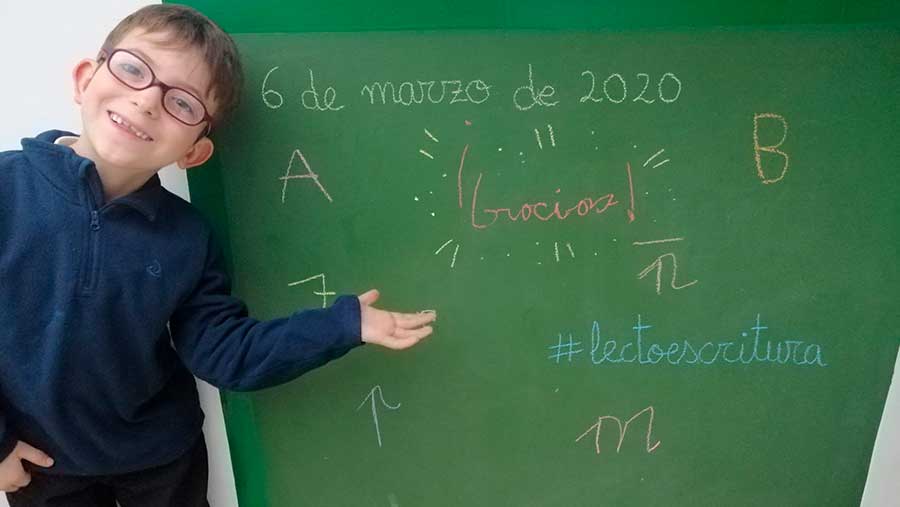 6 de marzo de 2020
A
B
¡Gracias!
ñ
7
#lectoescritura
p
m